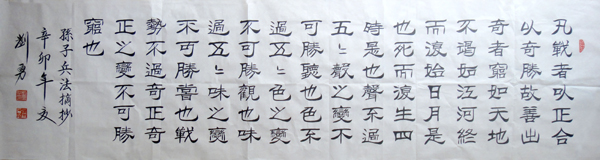 凡戰者以正合
以奇勝故善出
奇者窮如天地
不竭如江河終
而復始日月是
也死而復生四
時是也聲不過
五〻聲之變不
可勝聽也色不
過五〻色之變
不可勝觀也味
過五〻味之變
不可勝嘗也戰
勢不過奇正奇
正之變不可勝
窮也
孫子兵法摘抄
辛卯年夏
劉勇